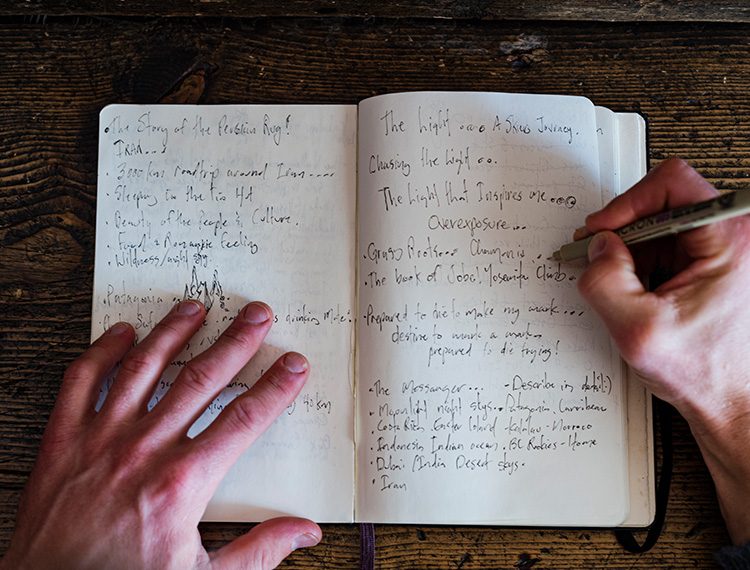 • The Story of the Persian Rug!
IRAN...
• 3000km roadtrip around Iran....
• Sleeping in the
Beauty of the People & Culture.
• Food & Romantic feeling
• Wildness/night sky.
• Patagonia
drinking Mate
The Light .... A Journey.
Chasing the Light ...
The Light that Inspires me ....
Overexposure...
• Grass Roots... Chamonix...
• The book of Yosemite Climb
• Prepared to die to make my mark....
desire to a mark
prepared to die trying!
• The Messanger... - Describe in detail :)
• Moonlight night skys. Patagonia, Carribean
• Costa Rica Easter Island - Kalalau - Morroco
• Indonesia Indian ocean. BC Rockies - Home
• Dubai / India Desert skys.
• Iran
CRON